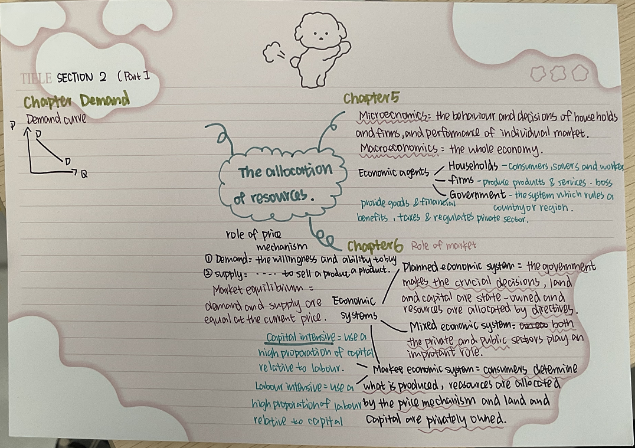 TITLE SECTION 2 (Part 1)
Chapter Demand
Demand curve
P
D
D
Q
The allocation
of resources.
Chapter5
Microeconomics: the behaviour and decisions of households
and firms, and performance of individual market.
Macroeconomics: the whole economy.
Economic agents
Households - consumers, savers and worker
firms - produce products & services - boss
Government - the system which rules a
country or region.
provide goods & financial
benefits, taxes & regulates private sector.
Chapter6 Role of market
role of price
mechanism
① Demand: the willingness and ability to buy
② supply: ..... to sell a product.
Market equilibrium =
demand and supply are
equal at the current price.
Economic
systems
Planned economic system = the government
makes the crucial decisions, land
and capital are state-owned and
resources are allocated by directives.
Mixed economic system = both
the private and public sectors play an
important role.
Market economic system = consumers determine
what is produced, resources are allocated
by the price mechanism and land and
capital are privately owned.
Capital intensive = use a
high proporation of capital
relative to labour.
Labour intensive = use a
high proporation of labour
relative to capital